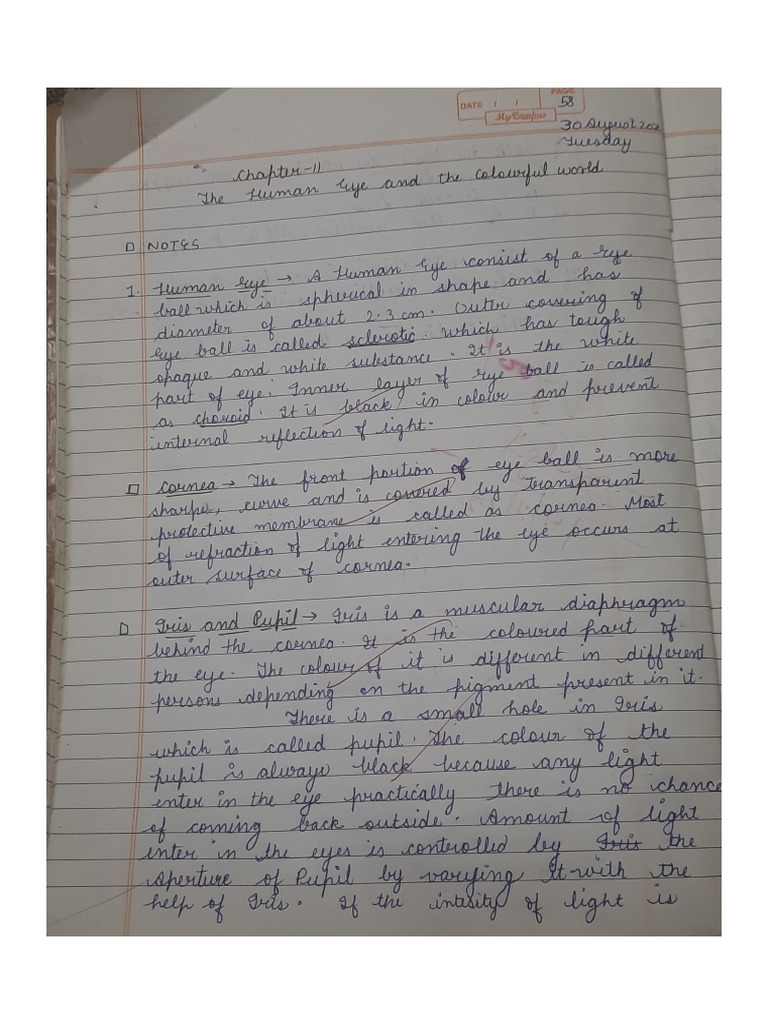 DATE / / PAGE 58
MyCampus
30 August
Tuesday
Chapter-11
The Human Eye and the colourful world
NOTES
1. Human Eye → A Human Eye consist of a eye
ball which is spherical in shape and has
diameter of about 2.3 cm. Outer covering of
eye ball is called sclerotic. which has tough
opaque and white substance. It is the white
part of eye. Inner layer of eye ball is called
as choroid. It is black in colour and prevent
internal reflection of light.
Cornea → The front portion of eye ball is more
sharpe, curve and is covered by transparent
protective membrane is called as cornea. Most
of refraction of light entering the eye occurs at
outer surface of cornea.
Iris and Pupil → Iris is a muscular diaphragm
behind the cornea. It is the coloured part of
the eye. The colour of it is different in different
persons depending on the pigment present in it.
There is a small hole in Iris
which is called pupil. The colour of the
pupil is always black because any light
enter in the eye practically there is no chance
of coming back outside. Amount of light
enter in the eyes is controlled by Iris the
aperture of Pupil by varying it with the
help of Iris. If the intesity of light is